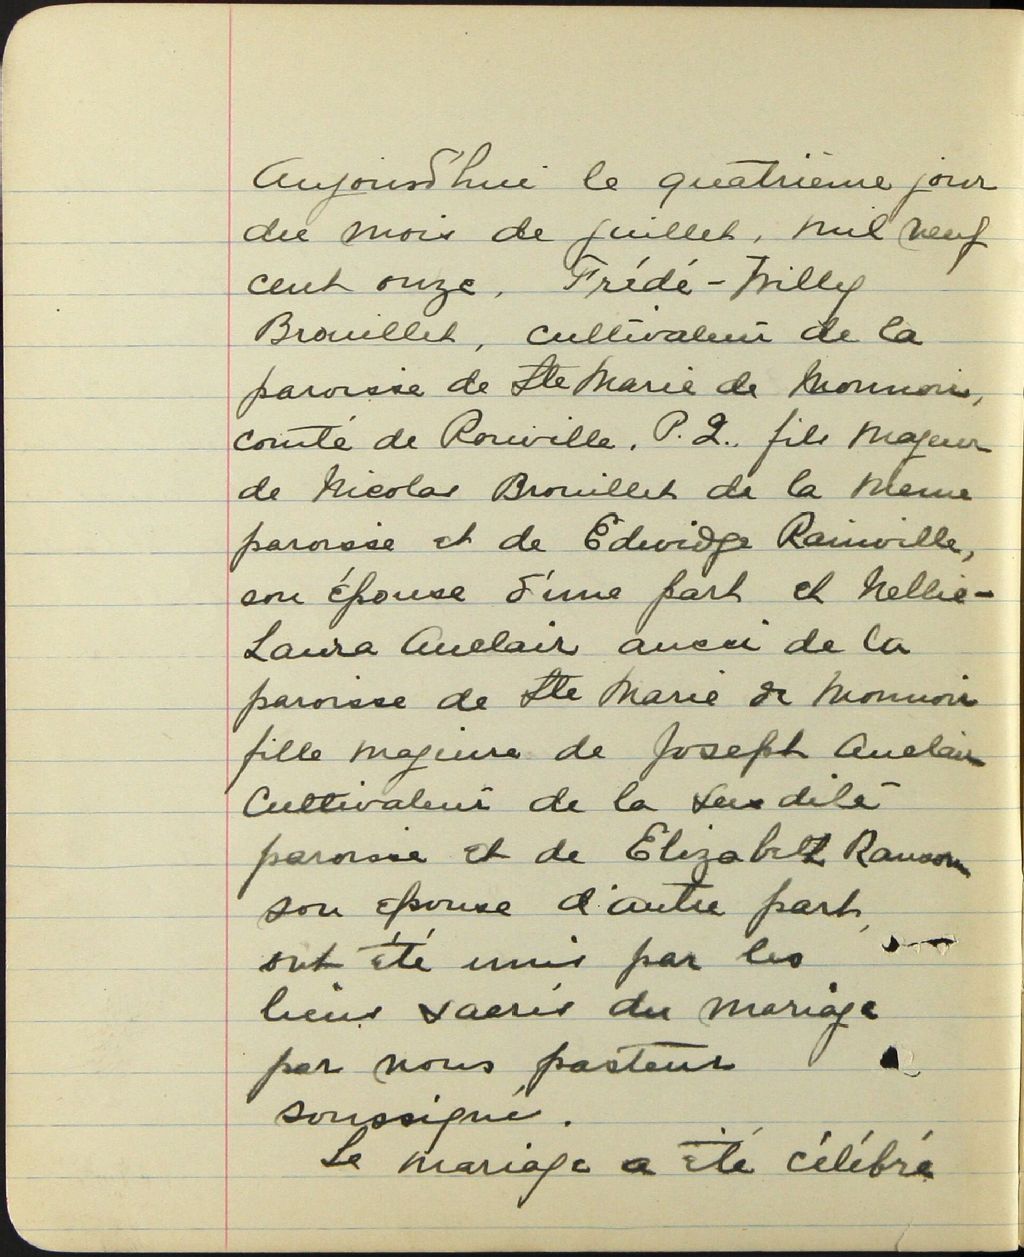 Aujourd'hui le quatrième jour
du mois de juillet, mil neuf
cent onze, Frédé-Willy
Brouillet, cultivateur de la
paroisse de Ste Marie de Monnoir,
comté de Rouville, P.Q., fils majeur
de Nicolas Brouillet de la meme
paroisse et de Edwidge Rainville,
son épouse d'une part et Nellie-
Laura Auclair aussi de la
paroisse de Ste Marie de Monnoir
fille majeure de Joseph Auclair
Cultivateur de la susdite
paroisse et de Elizabeth Ransom
son épouse d'autre part,
ont été unis par les
liens sacrés du mariage
par nous pasteur
soussigné.
Le mariage a été célébré